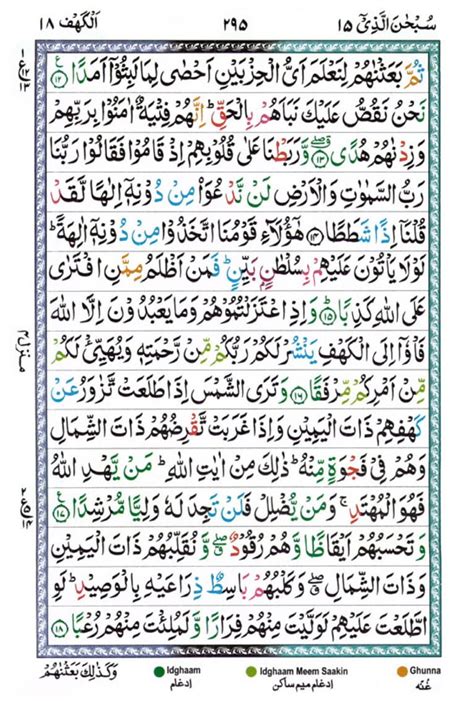 سُبْحٰنَ الَّذِیْۤ ۱۵ ۲۹۵ اَلْكَهْف ۱۸
ثُمَّ بَعَثْنٰهُمْ لِنَعْلَمَ اَیُّ الْحِزْبَیْنِ اَحْصٰى لِمَا لَبِثُوْۤا اَمَدًا ۠ ﴿۱۲﴾
نَحْنُ نَقُصُّ عَلَیْكَ نَبَاَهُمْ بِالْحَقِّ ؕ اِنَّهُمْ فِتْیَةٌ اٰمَنُوْا بِرَبِّهِمْ
وَ زِدْنٰهُمْ هُدًى ﴿۱۳﴾ وَّ رَبَطْنَا عَلٰى قُلُوْبِهِمْ اِذْ قَامُوْا فَقَالُوْا رَبُّنَا
رَبُّ السَّمٰوٰتِ وَ الْاَرْضِ لَنْ نَّدْعُوَا۠ مِنْ دُوْنِهٖۤ اِلٰهًا لَّقَدْ
قُلْنَاۤ اِذًا شَطَطًا ﴿۱۴﴾ هٰۤؤُلَآءِ قَوْمُنَا اتَّخَذُوْا مِنْ دُوْنِهٖۤ اٰلِهَةً ؕ
لَوْ لَا یَاْتُوْنَ عَلَیْهِمْ بِسُلْطٰنٍۭ بَیِّنٍ ؕ فَمَنْ اَظْلَمُ مِمَّنِ افْتَرٰى
عَلَى اللّٰهِ كَذِبًا ؕ ﴿۱۵﴾ وَ اِذِ اعْتَزَلْتُمُوْهُمْ وَ مَا یَعْبُدُوْنَ اِلَّا اللّٰهَ
فَاْوٗۤا اِلَى الْكَهْفِ یَنْشُرْ لَكُمْ رَبُّكُمْ مِّنْ رَّحْمَتِهٖ وَ یُهَیِّئْ لَكُمْ
مِّنْ اَمْرِكُمْ مِّرْفَقًا ﴿۱۶﴾ وَ تَرَى الشَّمْسَ اِذَا طَلَعَتْ تَّزٰوَرُ عَنْ
كَهْفِهِمْ ذَاتَ الْیَمِیْنِ وَ اِذَا غَرَبَتْ تَّقْرِضُهُمْ ذَاتَ الشِّمَالِ
وَ هُمْ فِیْ فَجْوَةٍ مِّنْهُ ؕ ذٰلِكَ مِنْ اٰیٰتِ اللّٰهِ ؕ مَنْ یَّهْدِ اللّٰهُ
فَهُوَ الْمُهْتَدِ ۚ وَ مَنْ یُّضْلِلْ فَلَنْ تَجِدَ لَهٗ وَلِیًّا مُّرْشِدًا ۠ ﴿۱۷﴾
وَ تَحْسَبُهُمْ اَیْقَاظًا وَّ هُمْ رُقُوْدٌ ۖۗ وَّ نُقَلِّبُهُمْ ذَاتَ الْیَمِیْنِ
وَ ذَاتَ الشِّمَالِ ۖۗ وَ كَلْبُهُمْ بَاسِطٌ ذِرَاعَیْهِ بِالْوَصِیْدِ ؕ لَوِ
اطَّلَعْتَ عَلَیْهِمْ لَوَلَّیْتَ مِنْهُمْ فِرَارًا وَّ لَمُلِئْتَ مِنْهُمْ رُعْبًا ﴿۱۸﴾
وَكَذٰلِكَ بَعَثْنٰهُمْ
Idghaam Idghaam Meem Saakin Ghunna
ادغام ادغام میم ساکن غنّه